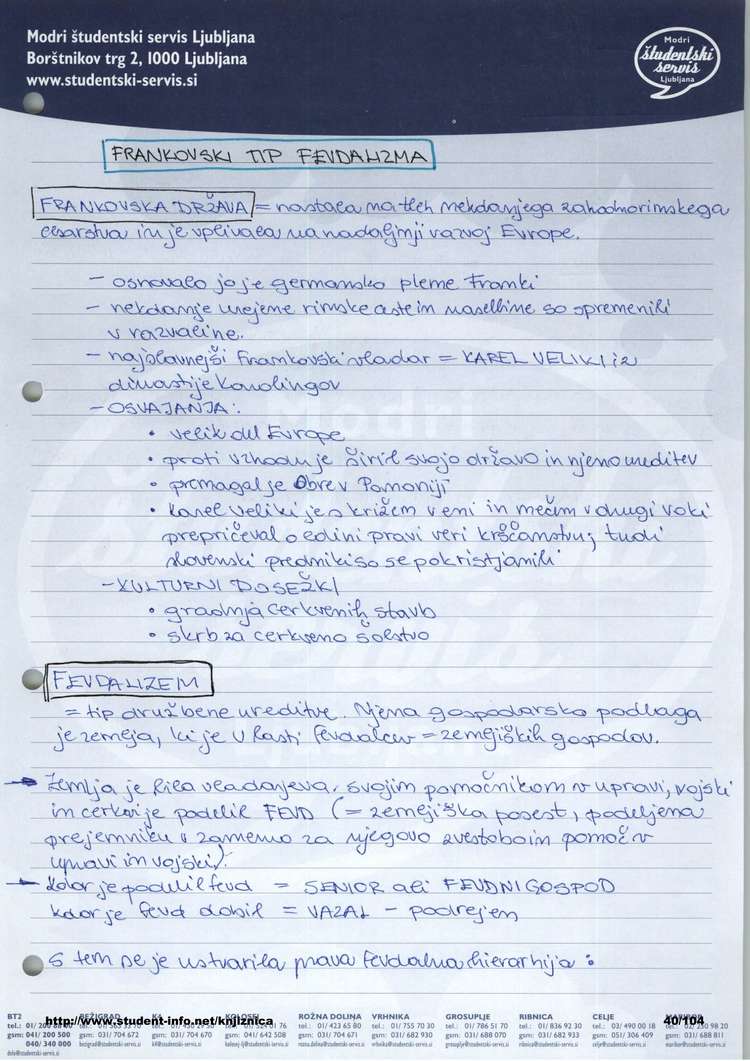 Modri študentski servis Ljubljana
Borštnikov trg 2, 1000 Ljubljana
www.studentski-servis.si
Modri
študentski
servis
Ljubljana
FRANKOVSKI TIP FEVDALIZMA
FRANKOVSKA DRŽAVA = nastala na tleh nekdanjega zahodnorimskega
cesarstva in je vplivala na nadaljnji razvoj Evrope.
- osnovalo jo je germansko pleme Franki
- nekdanje urejene rimske ceste in naselbine so spremenili
v razvaline.
- najslavnejši Frankovski vladar = KAREL VELIKI iz
dinastije Karolingov
- OSVAJANJA:
• velik del Evrope
• proti vzhodu je širil svojo državo in njeno ureditev
• premagal je Obre v Panoniji
• Karel Veliki je s križem v eni in mečem v drugi roki
prepričeval o edini pravi veri krščanstvu; tudi
slovenski predniki so se pokristjanili
- KULTURNI DOSEŽKI
• gradnja cerkvenih stavb
• skrb za cerkveno šolstvo
FEVDALIZEM
= tip družbene ureditve. Njena gospodarska podlaga
je zemlja, ki je v lasti fevdalcev = zemljiških gospodov.
→ Zemlja je bila vladarjeva, svojim pomočnikom v upravi, vojski
in cerkvi je podelil FEVD (= zemljiška posest, podeljena
prejemniku v zameno za njegovo zvestobo in pomoč v
upravi in vojski).
→ kdor je podelil fevd = SENIOR ali FEVDNI GOSPOD
kdor je fevd dobil = VAZAL - podrejen
S tem se je ustvarila prava fevdalna hierarhija:
http://www.student-info.net/knjiznica
40/104
BT2
gsm: 041/ 200 500
040/ 340 000
BEŽIGRAD
gsm: 031/ 704 672
gsm: 031/ 704 670
KOLOSEJ
gsm: 041/ 642 508
ROŽNA DOLINA
tel.: 01/ 423 65 80
gsm: 031/ 704 671
VRHNIKA
tel.: 01/ 755 70 30
gsm: 031/ 682 930
GROSUPLJE
tel.: 01/ 786 51 70
gsm: 031/ 688 070
RIBNICA
tel.: 01/ 836 92 30
gsm: 031/ 682 933
CELJE
tel.: 03/ 490 00 18
gsm: 051/ 306 409
gsm: 031/ 688 811